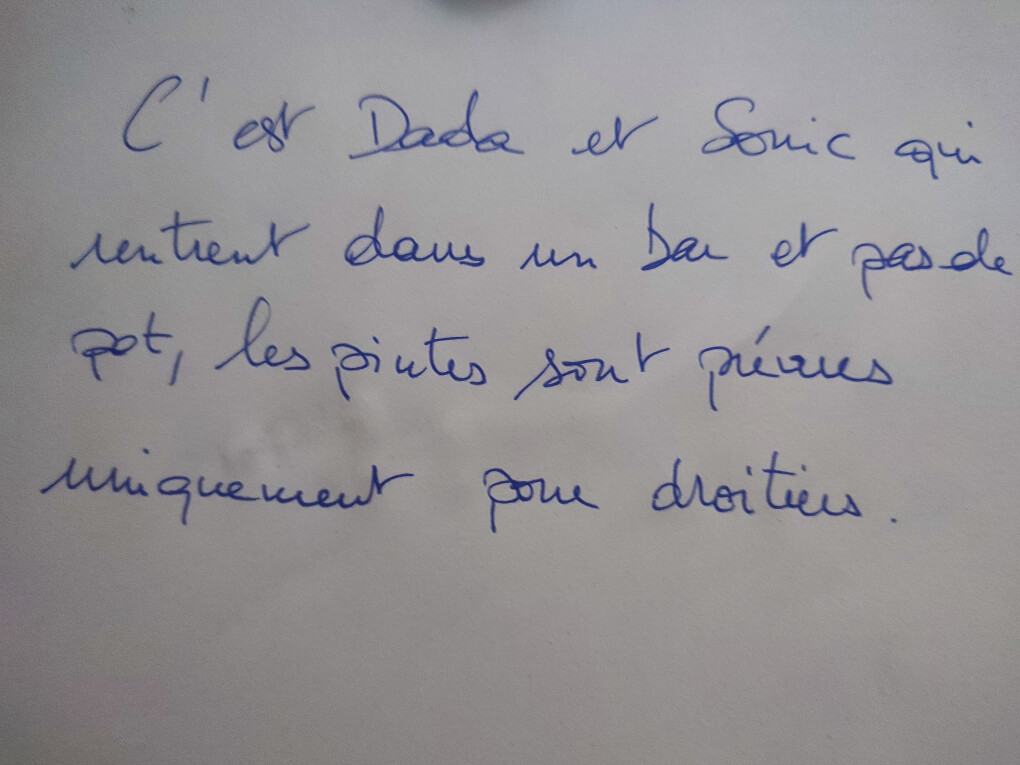 C'est Dada et Sonic qui
rentrent dans un bar et pas de
pot, les pintes sont prévues
uniquement pour droitiers.